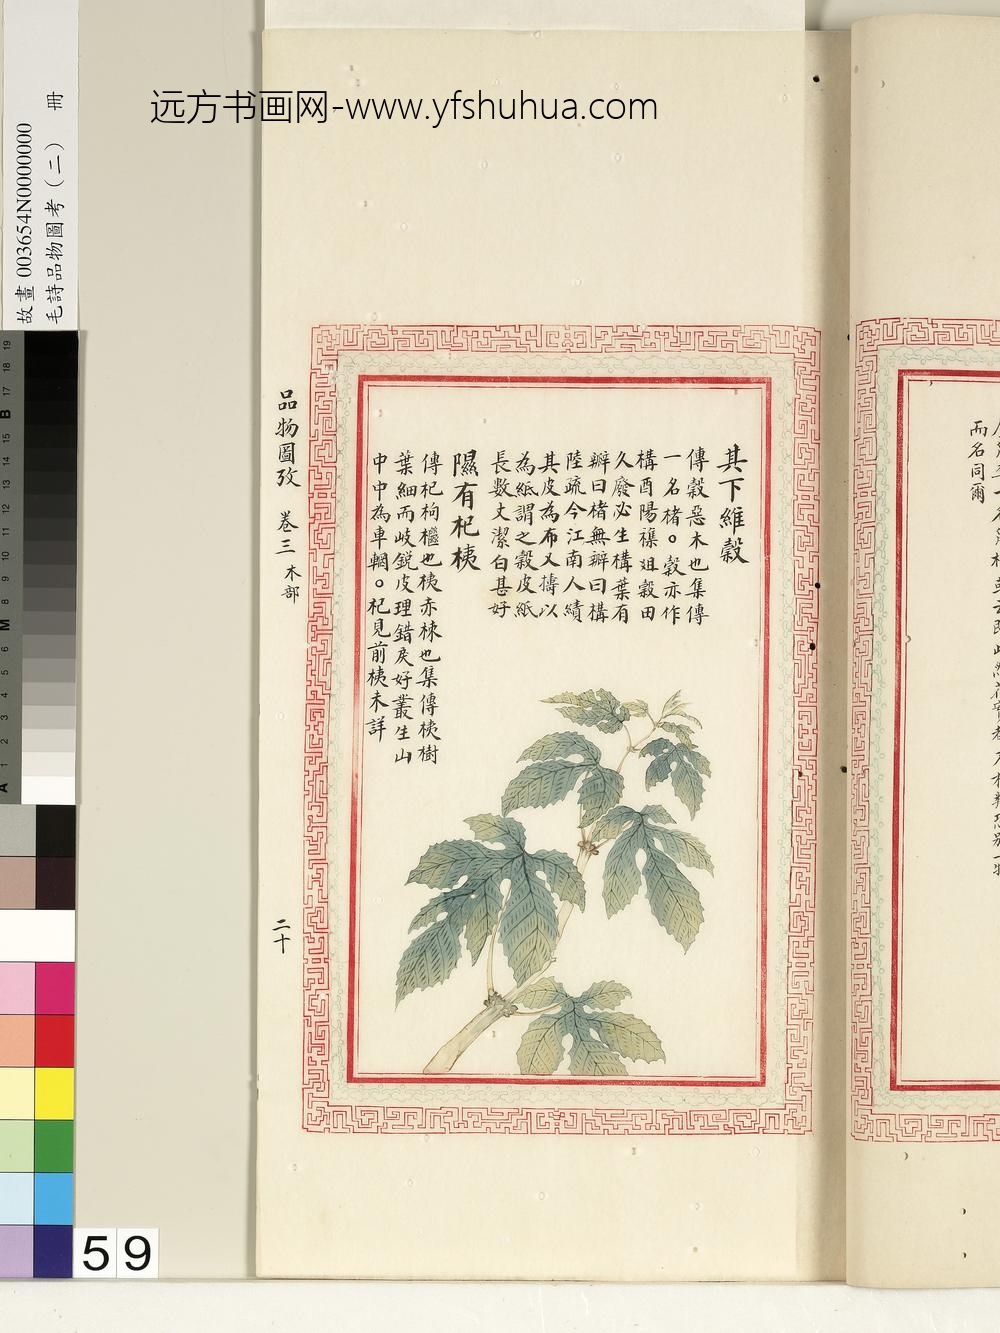 远方书画网-www.yfshuhua.com
故畫 003654N0000000
毛詩品物圖考（二） 冊
其下維榖
傳榖惡木也集傳
一名楮。榖亦作
構酉陽襍俎榖田
久廢必生構葉有
瓣曰楮無瓣曰構
陸疏今江南人績
其皮為布又擣以
為紙謂之榖皮紙
長數丈潔白甚好
隰有杞桋
傳杞枸檵也桋赤楝也集傳桋樹
葉細而岐銳皮理錯戾好叢生山
中中為車輞。杞見前桋未詳
品物圖攷 卷三 木部
二十
而名同爾
59
19
18
17
B
15
14
13
12
11
10
9
8
M
6
5
4
3
2
1
A